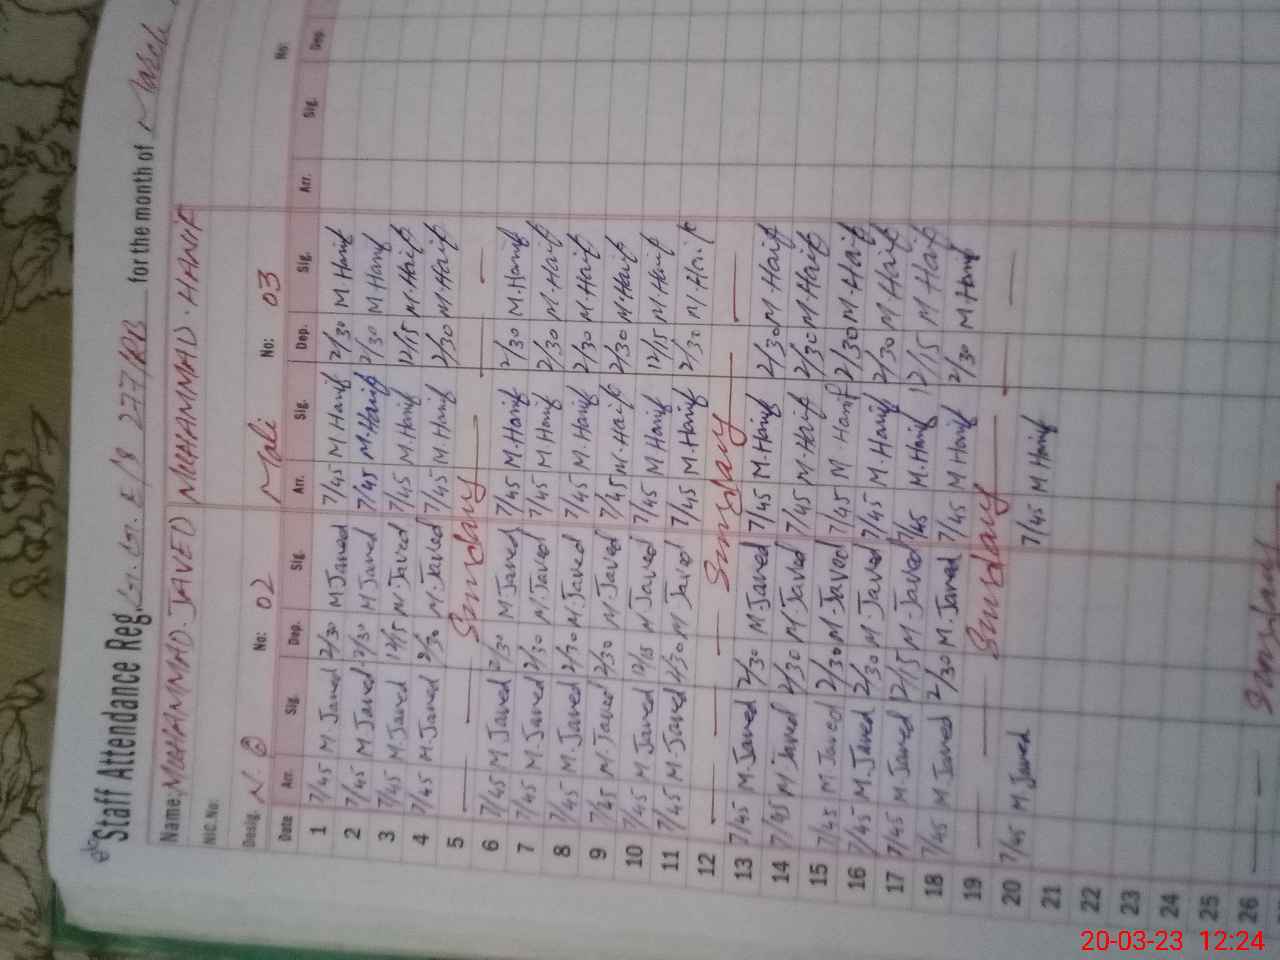 Staff Attendance Reg. G. G. E/S 277/RB for the month of March
Name: MUHAMMAD. JAVED MUHAMMAD. HANIF
NIC No:
Desig. N. Q No: 02 Mali No: 03 No:
Date Arr. Sig. Dep. Sig. Arr. Sig. Dep. Sig. Arr. Sig. Dep.
1 7/45 M Javed 2/30 M Javed 7/45 M Hanif 2/30 M Hanif
2 7/45 M Javed 2/30 M Javed 7/45 M. Hanif 2/30 M Hanif
3 7/45 M Javed 12/15 M. Javed 7/45 M Hanif 12/15 M. Haif
4 7/45 M. Javed 2/30 M. Javed 7/45 M. Hanif 2/30 M. Haif
5 Sunday
6 7/45 M Javed 2/30 M Javed 7/45 M. Hanif 2/30 M. Hanif
7 7/45 M. Javed 2/30 M. Javed 7/45 M. Hanif 2/30 M. Haif
8 7/45 M. Javed 2/30 M. Javed 7/45 M. Hanif 2/30 M. Haif
9 7/45 M. Javed 2/30 M Javed 7/45 M. Haif 2/30 M. Haif
10 7/45 M. Javed 12/15 M Javed 7/45 M Hanif 12/15 M. Haif
11 7/45 M. Javed 2/30 M. Javed 7/45 M. Hanif 2/30 M. Haif
12 Sunday
13 7/45 M. Javed 2/30 M Javed 7/45 M. Hanif 2/30 M. Haif
14 7/45 M. Javed 2/30 M Javed 7/45 M. Haif 2/30 M. Haif
15 7/45 M Javed 2/30 M. Javed 7/45 M. Hanif 2/30 M. Haif
16 7/45 M. Javed 2/30 M. Javed 7/45 M. Hanif 2/30 M. Haif
17 7/45 M. Javed 12/15 M. Javed 7/45 M. Hanif 12/15 M. Haif
18 7/45 M. Javed 2/30 M. Javed 7/45 M Hanif 2/30 M Hanif
19 Sunday
20 7/45 M Javed 7/45 M Hanif
21
22
23
24
25
26 Sunday
20-03-23 12:24